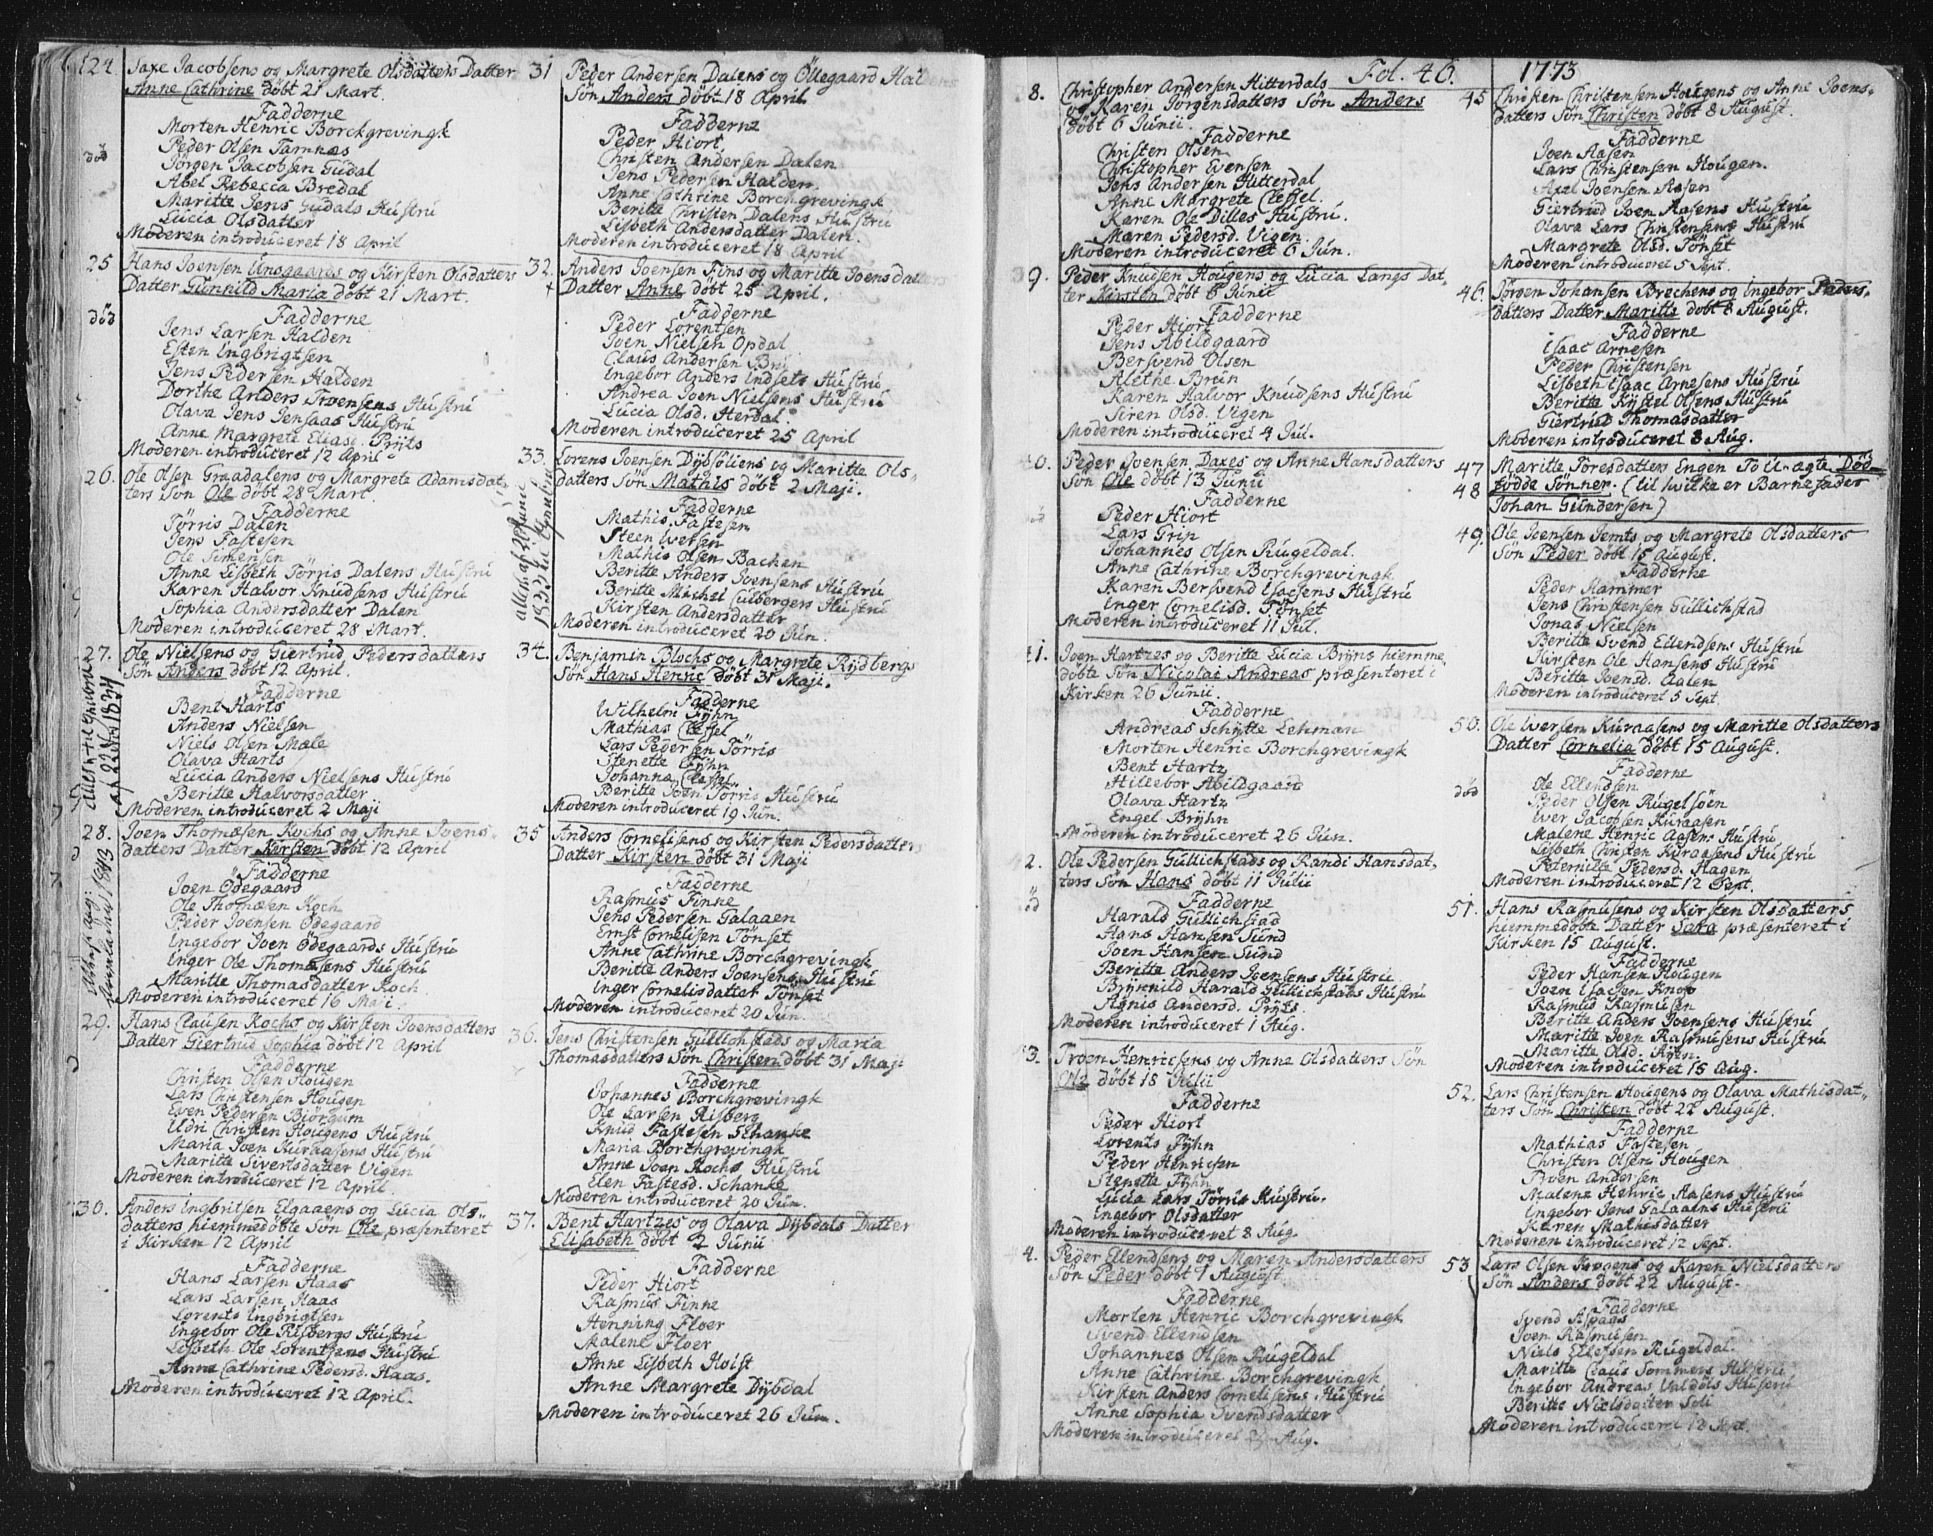 124. Saxe Jacobsens og Margrete Olsdatters Datter
Anne Cathrine döbt 21 Mart.
Fadderne
Morten Henric Borchgrevingk
Peder Olsen Tamnes
död
Jörgen Jacobsen Gudal
Abel Rebecca Bredal
Maritte Jens Gudals Hustrü
Lucia Olsdatter
Moderen introduceret 18 April
25 Hans Joensen Unsgaards og Kirsten Olsdatters
Datter Gunnild Maria döbt 21 Mart.
död
Fadderne
Jens Larsen Halden
Esten Ingbrigtsen
Jens Pedersen Halden
Dorthe Anders Troensens Hustrü
Olava Jens Jensaas Hustrü
Anne Margrete Eliasd. Prÿts
Moderen introduceret 12 April
26. Ole Olsen Graadalens og Margrete Adamsdat-
ters Sön Ole döbt 28 Mart
Fadderne
Törris Dalen
Jens Fastesen
Ole Simensen
Anne Lisbeth Törris Dalens Hustrü
Karen Halvor Knudsens Hustrü
Sophia Andersdatter Dalen
Moderen introduceret 28 Mart.
27. Ole Nielsens og Giertrud Pedersdatters
Sön Anders döbt 12 April.
Fadderne
Bent Harts
Anders Nielsen
Niels Olsen Mæle
Olava Harts
Lucia Anders Nielsens Hustrü
Beritte Halvorsdatter
Moderen introduceret 2 Maji
28. Joen Thomæsen Kochs og Anne Joens-
datters Datter Kirsten döbt 12 April
Fadderne
Joen Ödegaard
Ole Thomæsen Koch
Peder Joensen Ödegaard
Ingebor Joen Ödegaards Hustrü
Inger Ole Thomæsens Hustrü
Maritte Thomasdatter Koch
Moderen introduceret 16 Maji.
29. Hans Clausen Kochs og Kirsten Joensdatters
Datter Giertrud Sophia döbt 12 April
Fadderne
Christen Olsen Hougen
Lars Christensen Hougen
Even Pedersen Biörgum
Udri Christen Hougens Hustrü
Maria Joen Kuraasens Hustrü
Maritte Sivertsdatter Vigen
Moderen introduceret 12 April
30. Anders Ingbritsen Elgaaens og Lucia Ols-
datters hiemmedöbte Sön Ole præsenteret
i Kirken 12 April
Fadderne
Hans Larsen Haas
Lars Larsen Haas
Lorents Ingbrigtsen
Ingebor Ole Risbergs Hustrü
Lisbeth Ole Lorentsens Hustrü
Anne Cathrine Pedersd. Haas.
Moderen introduceret 12 April.
31 Peder Andersen Dalens og Ödegaard
Sön Anders döbt 18 April
Fadderne
Peder Hiort,
Christen Andersen Dalen
Jens Pedersen Halden
Anne Cathrine Borchgrevingk
Beritte Christen Dalens Hustrü
Lisbeth Andersdatter Dalen.
Moderen introduceret 18 April
32. Anders Joensen Fins og Maritte Joensdatters
+ Datter Anne döbt 25 April.
Fadderne
Peder Lorentsen
Joen Nielsen Opdal
Claus Andersen Brÿ
Ingebor Anders Indsets Hustrü
Andrea Joen Nielsens Hustrü
Lucia Olsd. Herdal
Moderen introduceret 25 April
33. Lorens Joensen Dÿbsöliens og Maritte Ols-
datters Sön Mathis döbt 2 Maji.
Fadderne
Mathis Fastesen
Steen Iversen
Mathis Olsen Bachen
Beritte Anders Joensens Hustrü
Beritte Michel Culbergers Hustrü
Kirsten Andersdatter
Moderen introduceret 20 Jun.
34. Benjamin Blochs og Margrete Rÿdbergs
Sön Hans Henric döbt 31 Maji.
Fadderne
Wilhelm Fÿhn
Mathias Cleffel
Lars Pedersen Törris
Stenette Fÿhn
Johanna Cleffel
Beritte Joen Törris Hustrü
Moderen introduceret 19 Jun.
35 Anders Cornelisens og Kirsten Pedersdatters
Datter Kirsten döbt 31 Maji
Fadderne
Rasmus Finne
Jens Pedersen Galaaen
Ernst Cornelisen Tönset
Anne Cathrine Borchgrevingk
Beritte Anders Joensens Hustrü
Inger Cornelisdatter Tönset
Moderen introduceret 20 Jun.
36. Jens Christensen Gullichstads og Maria
Thomasdatters Sön Christen döbt 31 Maji
Fadderne
Johannes Borchgrevingk
Ole Larsen Risberg
Knud Fastesen Schanke
Maria Borchgrevingk
Anne Joen Kochs Hustrü
Elen Fastesd. Schanke
Moderen introduceret 20 Jun.
37. Bent Hartzes og Olava Dÿbdals Datter
Elisabeth döbt 2 Junii
Fadderne
Peder Hiort
Rasmus Finne
Henning Floer
Malene Floer
Anne Lisbeth Hoist
Anne Margrete Dÿbdal
Moderen introduceret 26 Jun.
Fol. 46.
8. Christopher Andersen Hitterdals
og Karen Jörgensdatters Sön Anders
döbt 6 Junii.
Fadderne
Christen Olsen
Christopher Evensen
Jens Andersen Hitterdal
Anne Margrete Cleffel.
Karen Ole Dilles Hustrü.
Maren Pedersd. Vigen
Moderen introduceret 6 Jun.
39. Peder Knudsen Hougens og Lucia Langs Dat-
ter Kirsten döbt 6 Junii
Fadderne
Peder Hiort
Jens Abildgaard
Bersvend Olsen
Alethe Brün
Karen Halvor Knudsens Hustrü
Siren Olsd. Vigen
Moderen introduceret 4 Jul.
40. Peder Joensen Daxes og Anne Hansdatters
Sön Ole döbt 13 Junii
Fadderne
Peder Hiort
Lars Grip
Johannes Olsen Rugeldal.
Anne Cathrine Borchgrevingk
Karen Bersvend Isacsens Hustrü
Inger Cornelisd. Tönset
Moderen introduceret 11 Jul.
41. Joen Hartzes og Beritte Lucia Brÿns hiemme-
döbte Sön Nicolai Andreas præsenteret i
Kirken 26 Junii.
Fadderne
Andreas Schÿtte Lehman
Morten Henric Borchgrevingk
Bent Hartz
Hillebor Abildgaard
Olava Hartz
Engel Brÿhn
Moderen introduceret 26 Jun.
42. Ole Pedersen Gullichstads og Randi Hansdat-
ters Sön Hans döbt 11 Julii
Fadderne
Harald Gullichstad
Hans Hansen Sund
Joen Hansen Sund
Beritte Anders Joensens Hustrü
Brÿnnild Harald Gullichstads Hustrü
Agnis Andersd. Prÿts.
Moderen introduceret 1 Aug.
43. Troen Henricsens og Anne Olsdatters Sön
Ole döbt 18 Julii
Fadderne
Peder Hiort
Lorents Fÿhn
Peder Henricsen
Stenette Fÿhn
Lucia Lars Törris Hustrü.
Ingebor Olsdatter
Moderen introduceret 8 Aug.
4. Peder Ellendsens og Maren Andersdatters
Sön Peder döbt 1 August
Fadderne
Morten Henric Borchgrevingk
Svend Ellendsen
Johannes Olsen Rugeldal
Anne Cathrine Borchgrevingk
Kirsten Anders Cornelisens Hustrü
Anne Sophia Svendsdatter
Moderen introduceret Aug.
1773
45 Christen Christensen Hougens og Anne Joens-
datters Sön Christen döbt 8 August.
Fadderne
Joen Aasen
Lars Christensen Hougen.
Axel Joensen Aasen
Giertrud Joen Aasens Hustrü
Olava Lars Christensens Hustrü
Margrete Olsd. Tönset
Moderen introduceret 5 Sept.
46. Jörgen Johansen Brechens og Ingebor Peders-
datters Datter Maritte döbt 8 August.
Fadderne
Isaac Arnesen
Peder Christensen
Lisbeth Isaac Arnesens Hustrü
Beritte Kÿstel Olsens Hustrü
Giertrud Thomasdatter
Moderen introduceret 8 Aug.
47 Maritte Toresdatters Engen To U-ægte Död-
48 födde Sönner. (til hvilke er Barnefader
Johan Gundersen)
49. Ole Joensen Jemts og Margrete Olsdatters
Sön Peder döbt 15 August.
Fadderne
Peder Hammer
Jens Christensen Gullichstad
Jonas Nielsen
Beritte Svend Ellendsens Hustrü
Kirsten Ole Hansens Hustrü
Beritte Joensd. Aalen
Moderen introduceret 5 Sept.
50. Ole Iversen Kuraasens og Maritte Olsdatters
Datter Cornelia döbt 15 August.
Fadderne
död
Ole Ellensen
Peder Olsen Rugelsöen
Iver Jacobsen Kuraasen
Malene Henric Aasens Hustrü
Lisbeth Christen Kuraasens Hustrü
Peternille Pedersd. Hagen
Moderen introduceret 12 Sept.
51. Hans Rasmusens og Kirsten Olsdatters
hiemmedöbte Datter Sara præsenteret i
Kirken 15 August.
Fadderne
Peder Hansen Hougen
Joen Isacsen Knop
Rasmus Rasmusen
Beritte Anders Joensens Hustrü
Maritte Joen Rasmusens Hustrü
Maritte Olsd.
Moderen introduceret 15 Aug.
52. Lars Christensen Hougens og Olava Mathisdat-
ters Sön Christen döbt 22 August.
Fadderne
Mathias Fastesen
Christen Olsen Hougen
Troen Andersen
Malene Henric Aasens Hustrü
Ingebor Jens Galaaens Hustrü
Karen Mathisdatter
Moderen introduceret 12 Sept.
53 Lars Olsen og Karen Nielsdatters
Sön Anders döbt 22 August.
Fadderne
Svend Aspaas
Joen Rasmusen
Niels Ellefsen Rugeldal.
Maritte Claus Sommers Hustrü
Ingebor Andreas Valdols Hustrü
Beritte Nielsdatter
Moderen introduceret 12